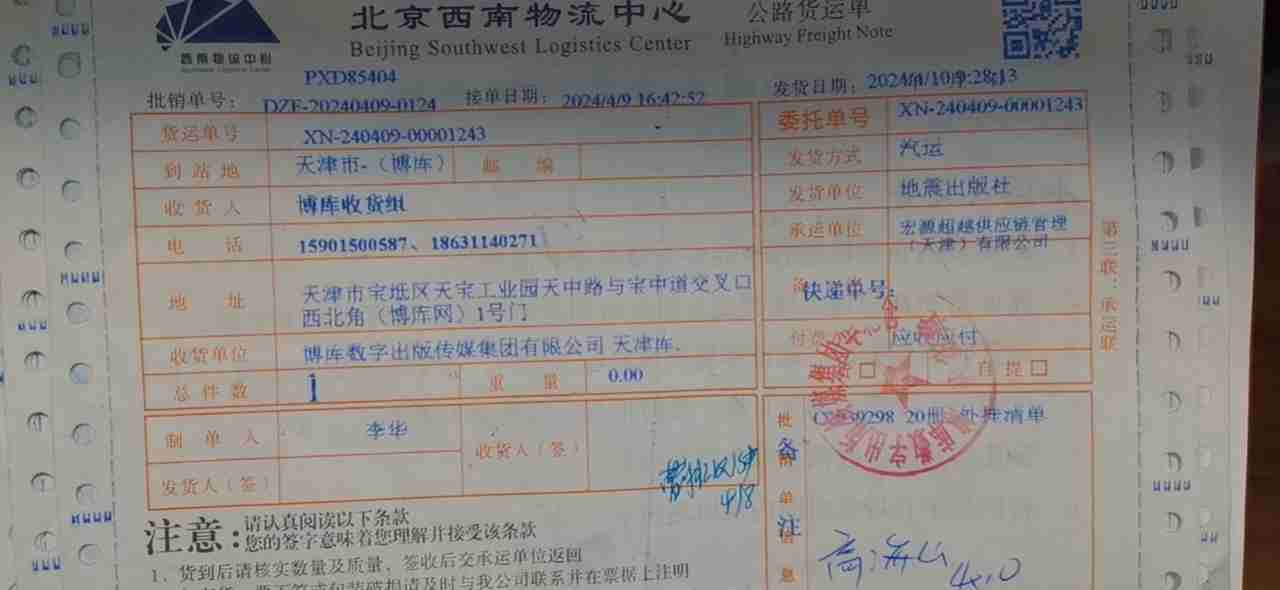 北京西南物流中心
公路货运单
Beijing Southwest Logistics Center
Highway Freight Note
西南物流中心
PXD85404
批销单号: DZF-20240409-0124 接单日期: 2024/4/9 16:42:52 发货日期:
货运单号 XN-240409-00001243 委托单号 XN-240409-00001243
到站地 天津市-（博库） 邮编 发货方式 汽运
收货人 博库收货组 发货单位 地震出版社
电话 15901500587、18631140271 承运单位 宏源超越供应链管理
（天津）有限公司
地址 天津市宝坻区天宝工业园天中路与宝中道交叉口
西北角（博库网）1号门
快递单号:
收货单位 博库数字出版传媒集团有限公司 天津库. 应收应付
总件数 1 重量 0.00 自提
制单人 李华 收货人（签）
发货人（签）
20册 清单
备注
4/8
第三联:承运联
注意:
请认真阅读以下条款
您的签字意味着您理解并接受该条款
1、货到后请核实数量及质量，签收后交承运单位返回